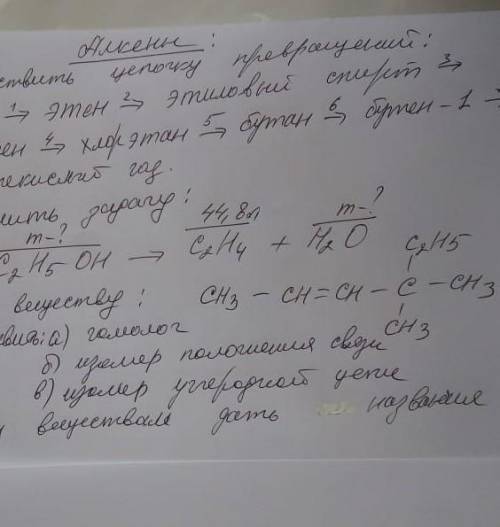 Алкены:
ствить цепочку превращений:
1→ этен 2→ этиловый спирт 3→
ен 4→ хлорэтан 5→ бутан 6→ бутен-1
лекислый газ.
шить задачу:
m-? 44,8л m-?
C2H5OH → C2H4 + H2O
веществу: CH3 - CH = CH - C - CH3
C2H5
CH3
а) гомолог
б) изомер положения связи
в) изомер углеродной цепи
веществам дать названия